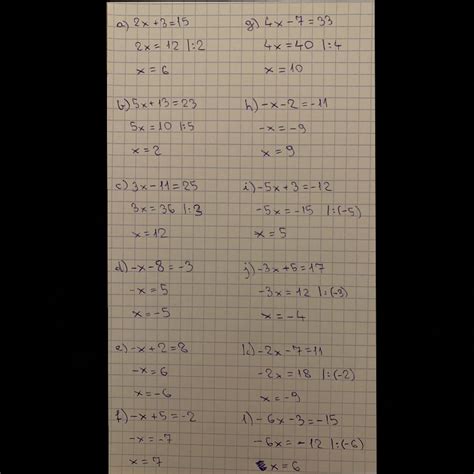 a) 2x+3=15
2x=12 |:2
x=6
b) 5x+13=23
5x=10 |:5
x=2
c) 3x-11=25
3x=36 |:3
x=12
d) -x-8=-3
-x=5
x=-5
e) -x+2=8
-x=6
x=-6
f) -x+5=-2
-x=-7
x=7
g) 4x-7=33
4x=40 |:4
x=10
h) -x-2=-11
-x=-9
x=9
i) -5x+3=-12
-5x=-15 |:(-5)
x=5
j) -3x+5=17
-3x=12 |:(-3)
x=-4
k) -2x-7=11
-2x=18 |:(-2)
x=-9
l) -6x-3=-15
-6x=-12 |:(-6)
x=6